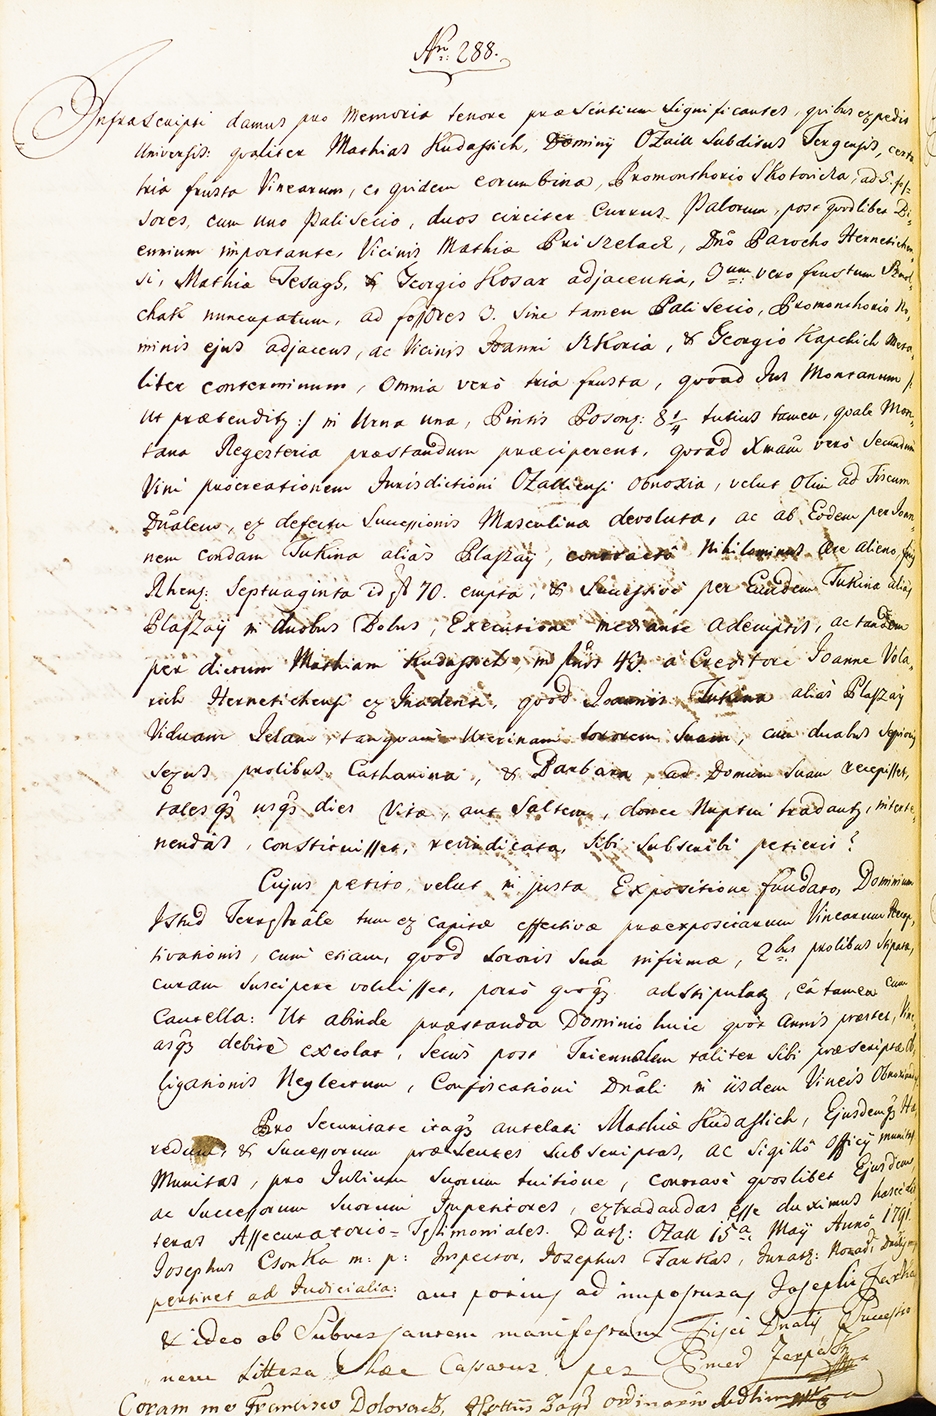 Nro: 288.
Infrascripti damus pro Memoria tenore praesentium significantes, quibus expedit
Universis: qualiter Mathias Kudassich, Dominij Ozail Subditus Tergensis, certa
tria frusta Vinearum, et quidem eorum bina, Promonthorio Skotovicza, ad 5. fos=
sores, cum uno Palisecio, duos circiter Currus Palorum, post quodlibet De=
cennium importante, Vicinis Mathia Priszelacz, Dno Parocho Hernetichen
si, Mathia Tesagh, & Georgio Kosar adjacentia, 3um vero frustum
chak nuncupatum, ad fossores 3. sine tamen Palisecio, Promonthorio No=
minis ejus adjacens, ac Vicinis Joanni Skoria, & Georgio Kapchich Meta=
liter conterminum, Omnia verò tria frusta, quoad Jus Montanum /:
Ut praetenditz :/ in Urna una, Pintis Posonz: 8 1/4 tutius tamen, quale Mon=
tana Regesteria praestandum praeciperent, quoad Xmam verò secundum
Vini procreationem Jurisdictioni Ozalliensi obnoxia, velut Olim ad Fiscum
Dnalem, ex defectu Successionis Masculinae devoluta, ac ab Eodem per Joan=
nem condam Tukina aliàs Plaszaij, contractô nihilominus Aere alieno,
Rhenz: Septuaginta id f 70. empta, & Successive per Eundem Tukina aliàs
Plaszaij in duobus Dolus, Executione mediante ademptis, ac tandem
per dictum Mathiam Kudassich, in flnis 43. à Creditore Joanne Vola=
rich Herneticheni ex Inadentia, quod Joannis Tukina aliàs Plaszaij
Viduam Jelam, tanquam Uterinam Sororem Suam, cum duabus Sequioris
Sexus prolibus Catharina, & Barbara, ad Domum Suam recepisset,
talesqz usqz dies Vitae, aut Saltem, donec Nuptui tradantz, interte=
nendas, constituisset, revindicata, sibi subscribi petierit?
Cujus petito, velut in justa Expositione fundato, Dominium
Istud Terrestrale tum ex capite effectivae praeexpositarum Vinearum Recup=
tivationis, cum etiam, quod sororis suae infirmae, 2bus prolibus stipatae,
curam suscipere voluisset, porrò quoqz adstipulatz, eâ tamen cum
Cautella: Ut abinde praestanda Dominio huic quot annis praestet, Vine=
asqz debitè excolat, secùs post Triennalem taliter sibi praescriptae Ob=
ligationis Neglectum, Confiscationi Dnali in iisdem Vineis Obnoxiandus
Pro Securitate itaqz antelati Mathiae Kudassich, Ejusdemqz Hae=
redum, & Successorum praesentes subscriptas, ac Sigillô Officij munitas
Munitas, pro Jurium Suorum tuitione, contravè quoslibet Ejusdem,
ac Successorum Suorum Impetitores, extradandas esse duximus hasce Lit=
teras Assecuratorio=Testimoniales. Datz: Ozall 15a Maij Annô 1791.
Josephus Csonka m: p: Inspector, Josephus Farkas, Juratz:
pertinet ad Judicialia: aut potius ad imposturas Josephi Farkas
& ideo ob Subversantem manifestam Fisci Dnalis Successio
nem Littera hae Cassatur per Emer
Coram me Francisco Dolovacz, ordinario Judlium